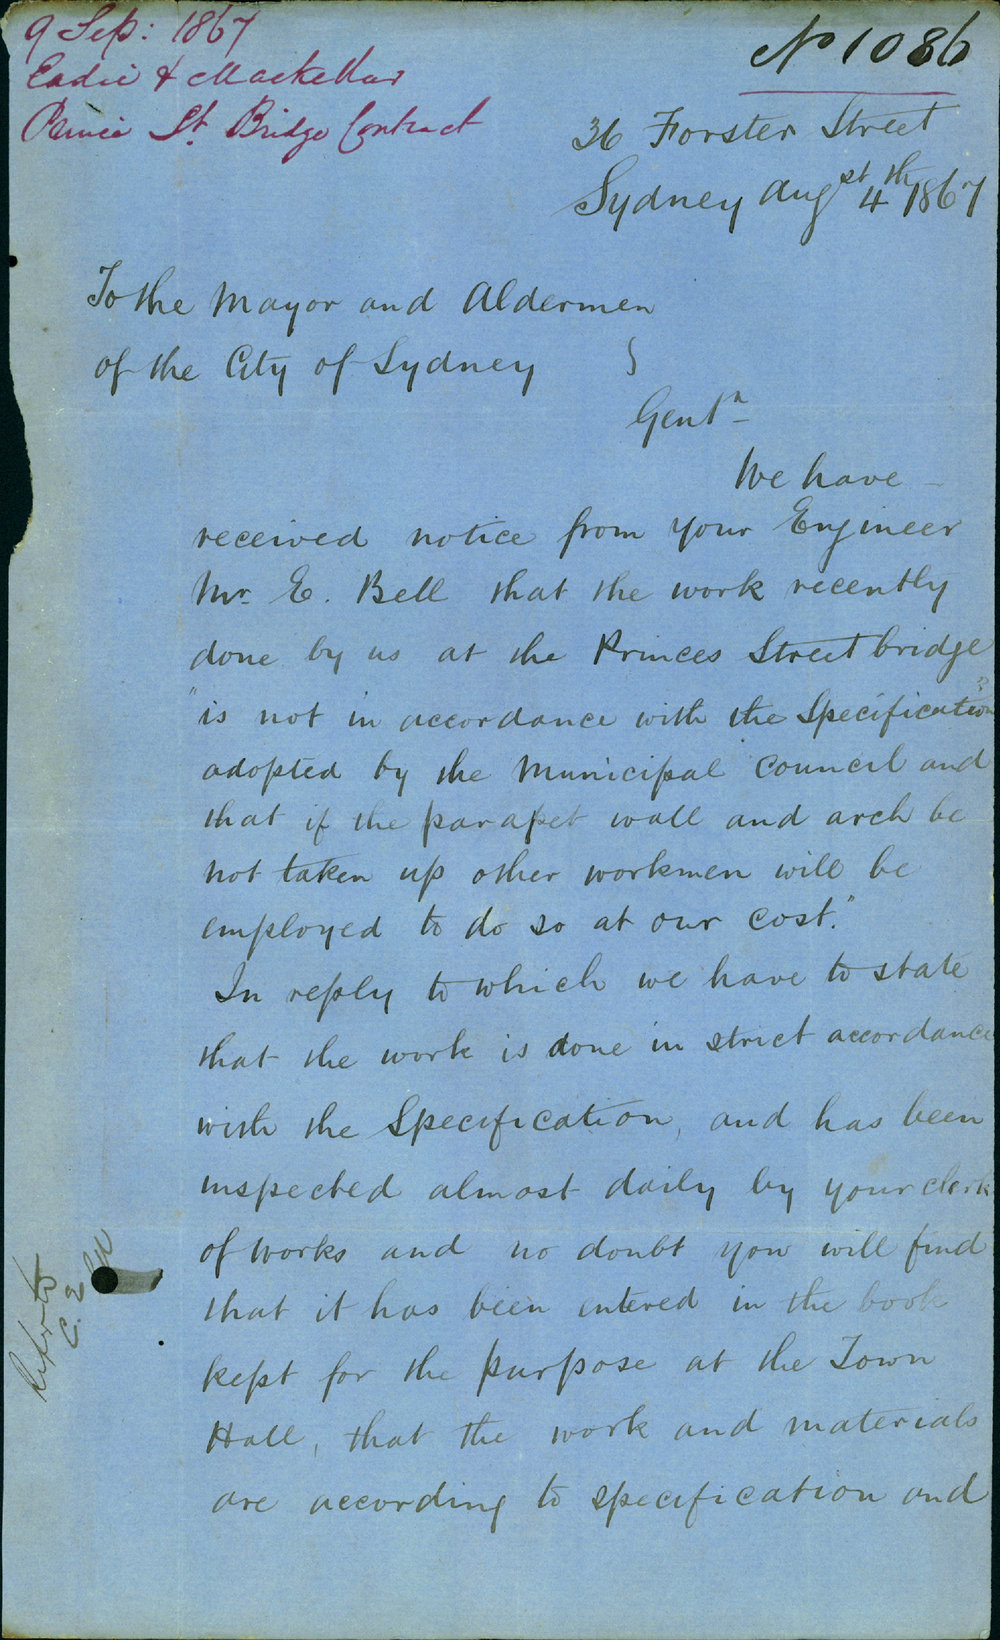 9 Sep: 1867
Eadie & Mackellar
Princes St. Bridge Contract
No 1086
36 Forster Street
Sydney Augst 4th 1867
To the Mayor and Aldermen
of the City of Sydney
Gentn
We have
received notice from your Engineer
Mr. E. Bell that the work recently
done by us at the Princes Street bridge
"is not in accordance with the Specification
adopted by the Municipal Council and
that if the parapet wall and arch be
not taken up other workmen will be
employed to do so at our cost."
In reply to which we have to state
that the work is done in strict accordance
with the Specification, and has been
inspected almost daily by your clerk
of works and no doubt you will find
that it has been entered in the book
kept for the purpose at the Town
Hall, that the work and materials
are according to specification and